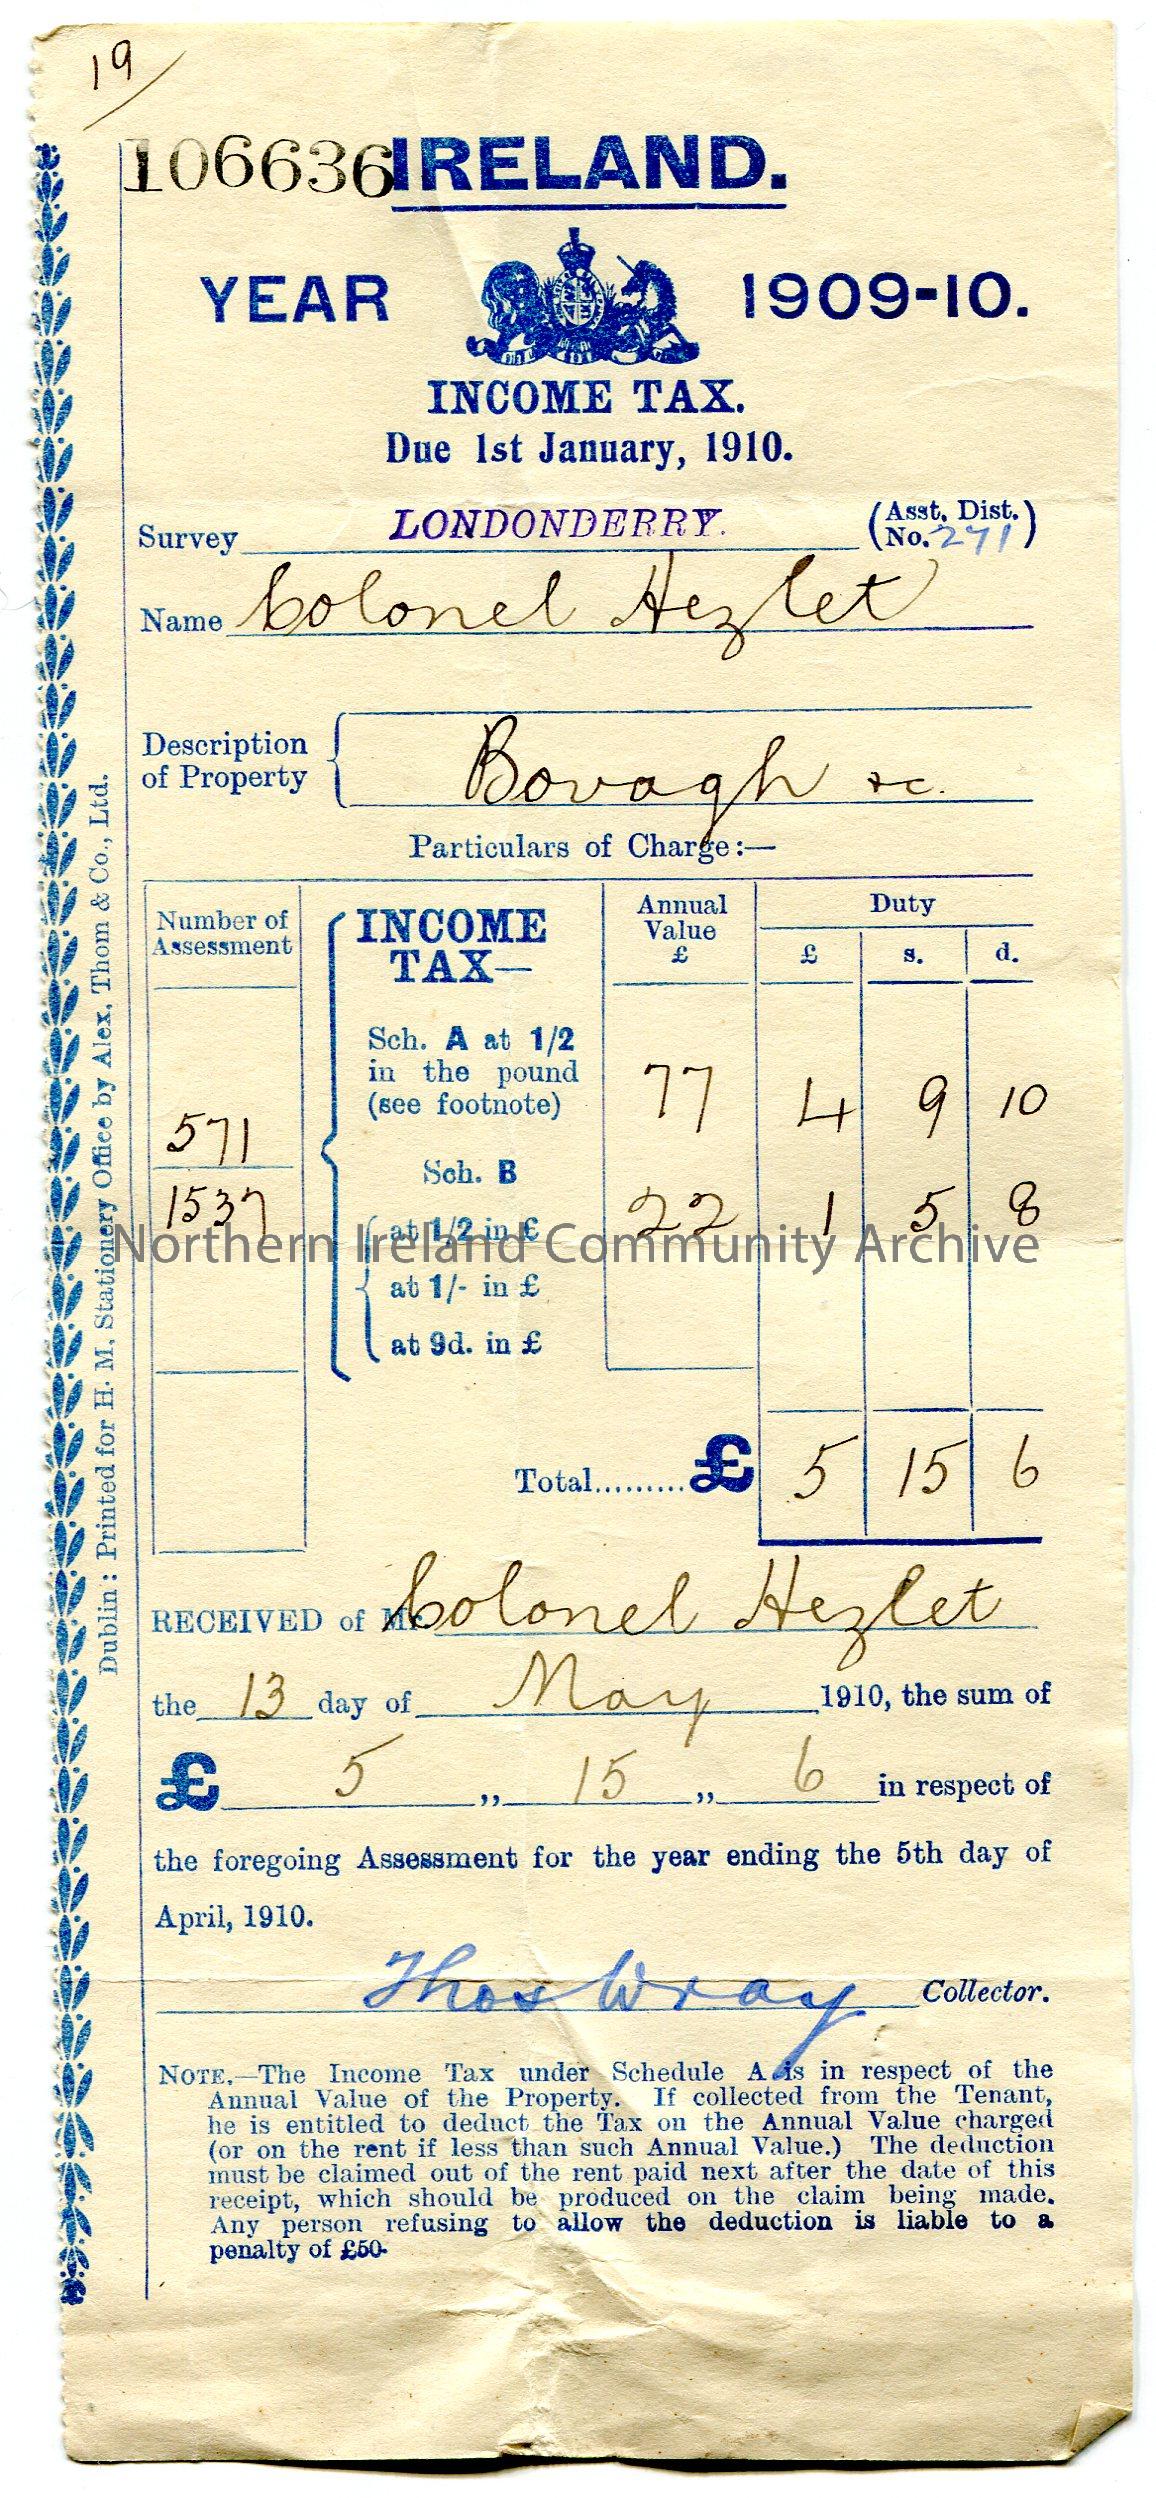 19/
106636 IRELAND.
YEAR 1909-10.
INCOME TAX.
Due 1st January, 1910.
Survey LONDONDERRY. (Asst. Dist. No. 271)
Name Colonel Hezlet
Description of Property Bovagh &c.
Particulars of Charge:—
Number of Assessment
INCOME TAX—
Annual Value £
Duty
£ s. d.
Sch. A at 1/2 in the pound (see footnote)
571 77 4 9 10
Sch. B
1537 at 1/2 in £ 22 1 5 8
at 1/- in £
at 9d. in £
Total......... £ 5 15 6
RECEIVED of Mr. Colonel Hezlet
the 13 day of May 1910, the sum of
£ 5 „ 15 „ 6 in respect of
the foregoing Assessment for the year ending the 5th day of
April, 1910.
Thos Wray Collector.
NOTE.—The Income Tax under Schedule A is in respect of the
Annual Value of the Property. If collected from the Tenant,
he is entitled to deduct the Tax on the Annual Value charged
(or on the rent if less than such Annual Value.) The deduction
must be claimed out of the rent paid next after the date of this
receipt, which should be produced on the claim being made.
Any person refusing to allow the deduction is liable to a
penalty of £50.
Dublin: Printed for H. M. Stationery Office by Alex. Thom & Co., Ltd.
Northern Ireland Community Archive